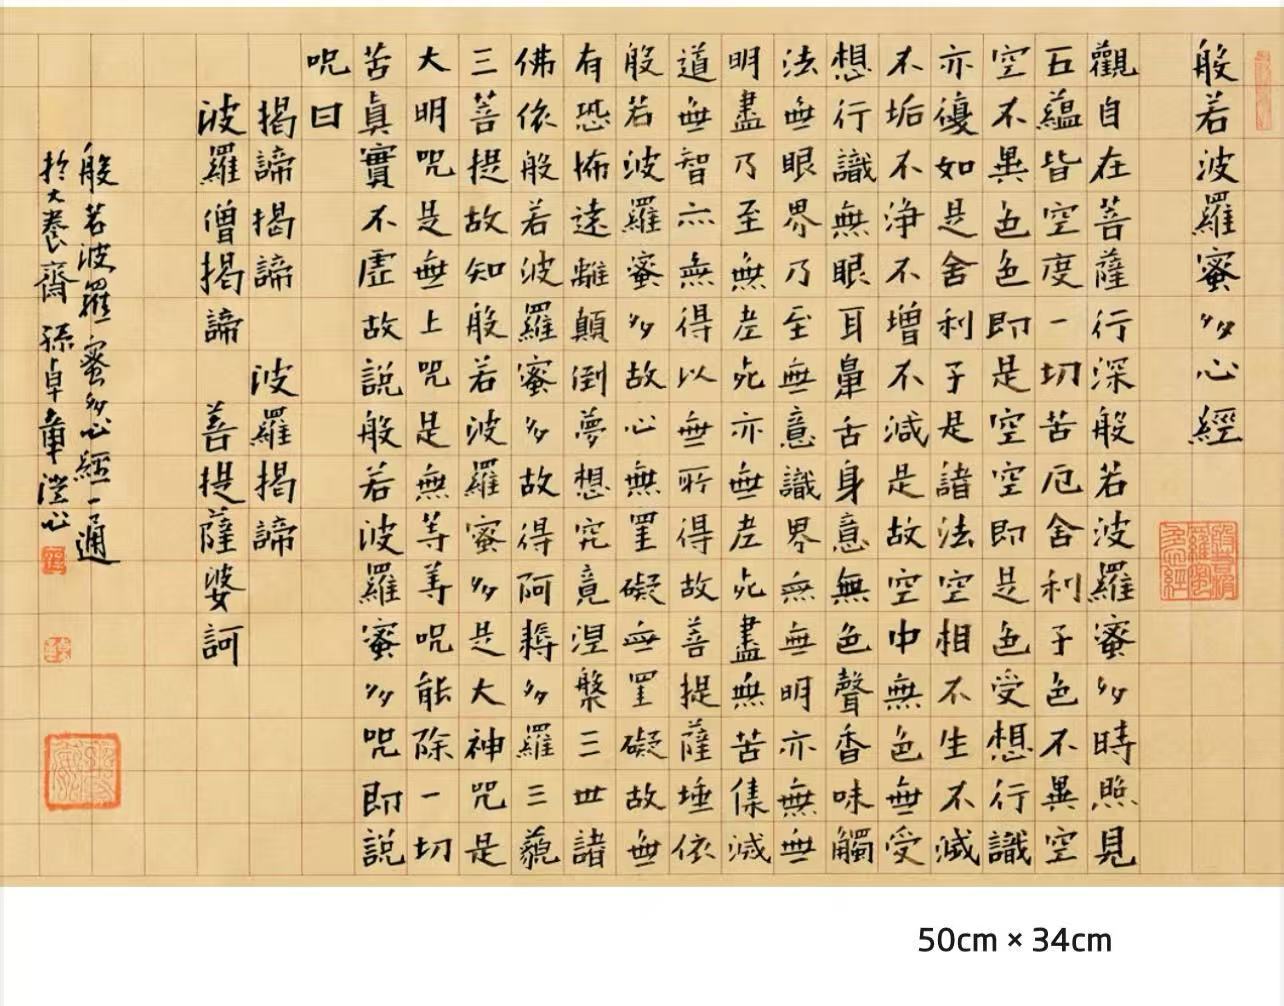 般若波羅蜜多心經
觀自在菩薩行深般若波羅蜜多時照見
五蘊皆空度一切苦厄舍利子色不異空
空不異色色即是空空即是色受想行識
亦復如是舍利子是諸法空相不生不滅
不垢不淨不增不減是故空中無色無受
想行識無眼耳鼻舌身意無色聲香味觸
法無眼界乃至無意識界無無明亦無無
明盡乃至無老死亦無老死盡無苦集滅
道無智亦無得以無所得故菩提薩埵依
般若波羅蜜多故心無罣礙無罣礙故無
有恐怖遠離顛倒夢想究竟涅槃三世諸
佛依般若波羅蜜多故得阿耨多羅三藐
三菩提故知般若波羅蜜多是大神咒是
大明咒是無上咒是無等等咒能除一切
苦真實不虛故說般若波羅蜜多咒即說
咒曰
揭諦揭諦 波羅揭諦
波羅僧揭諦 菩提薩婆訶
般若波羅蜜多心經一通
於大養齋 孫卓章澄心
50cm × 34cm